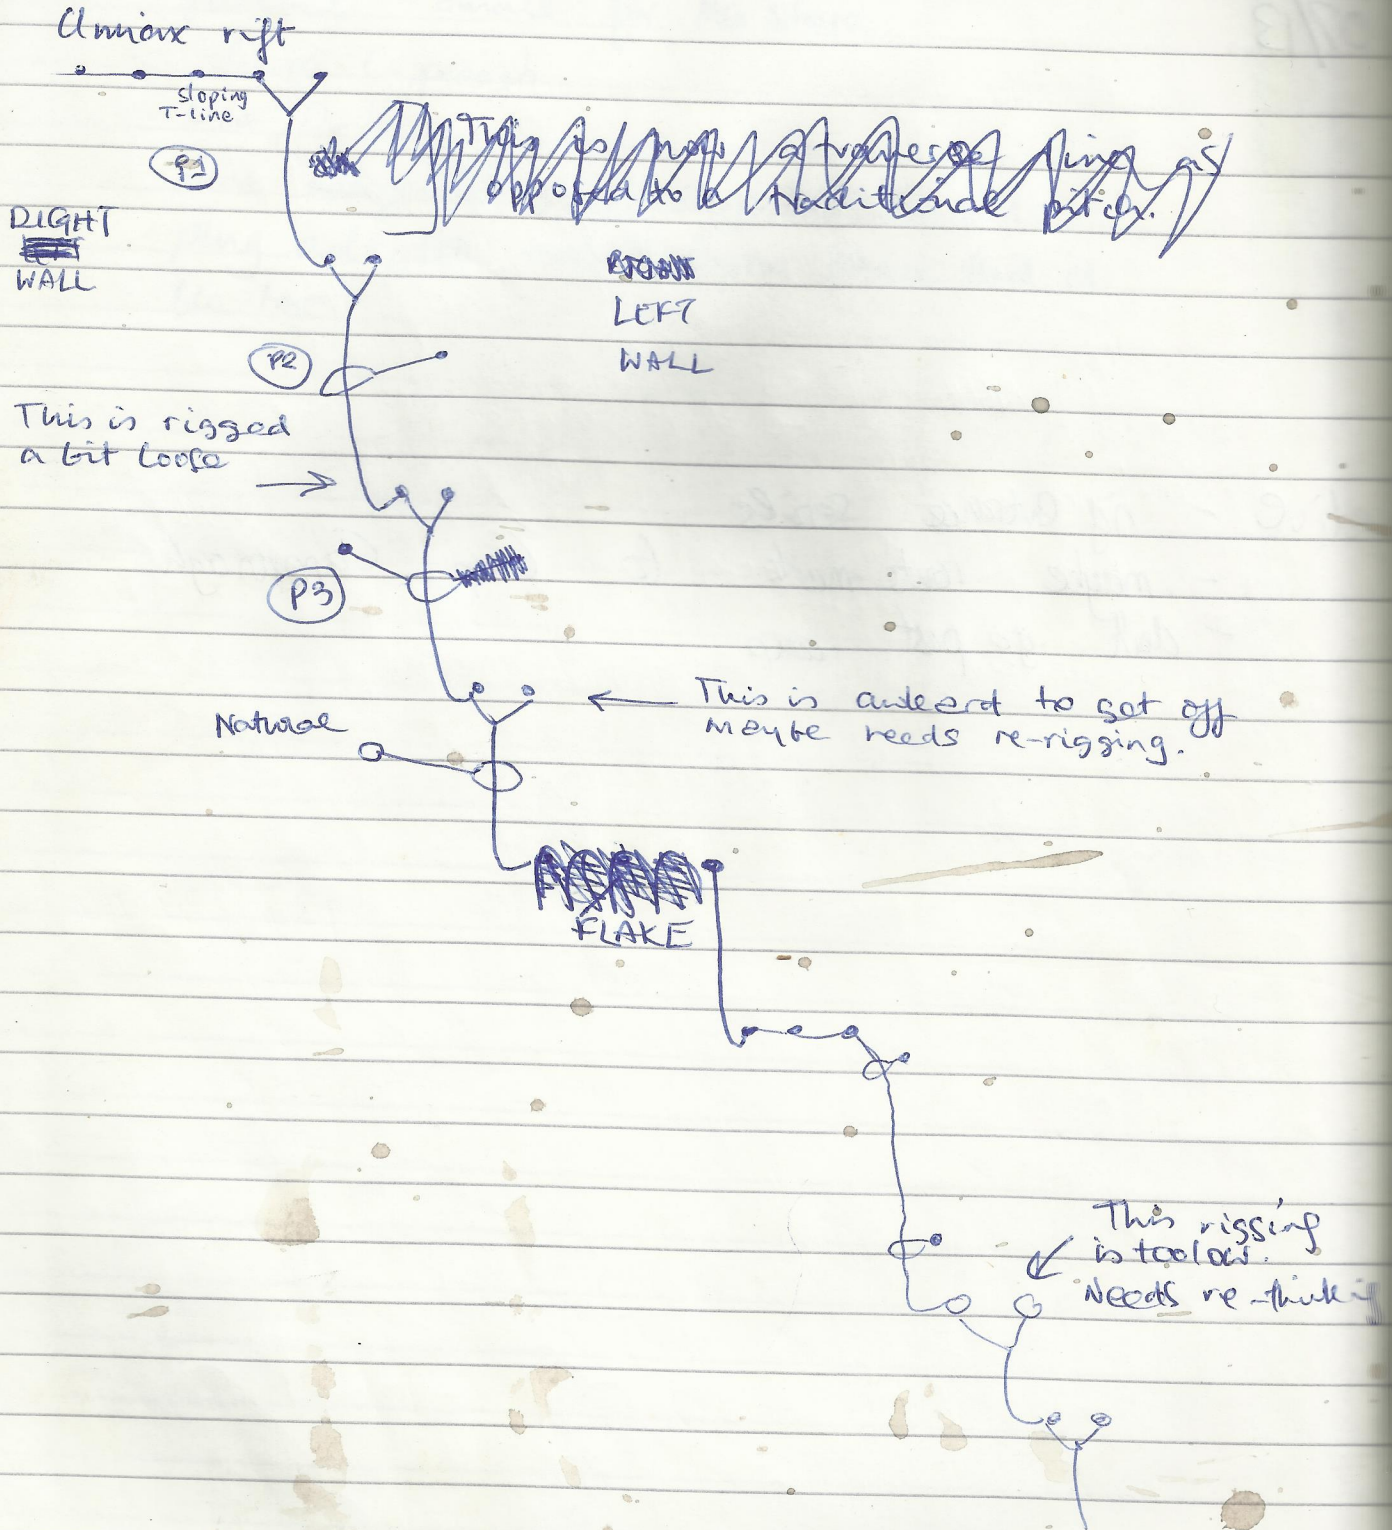 Climax rift
sloping
T-line
P1
This is now a traverse line as
opposed to a traditional pitch.
RIGHT
WALL
LEFT
WALL
P2
This is rigged
a bit loose
P3
This is awkward to get off
Maybe needs re-rigging.
Natural
FLAKE
This rigging
is too low.
Needs re-thinking